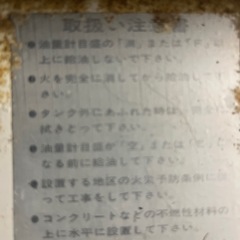 取扱い注意書
●油量計目盛の「満」または「F」以
上に給油しないで下さい。
●火を完全に消してから給油して下
さい。
●タンク外にあふれた時は、完全に
拭きとって下さい。
●油量計目盛が「空」または「E」に
なる前に給油して下さい。
●設置する地区の火災予防条例に従
って工事をして下さい。
●コンクリートなどの不燃性材料の
上に水平に設置して下さい。